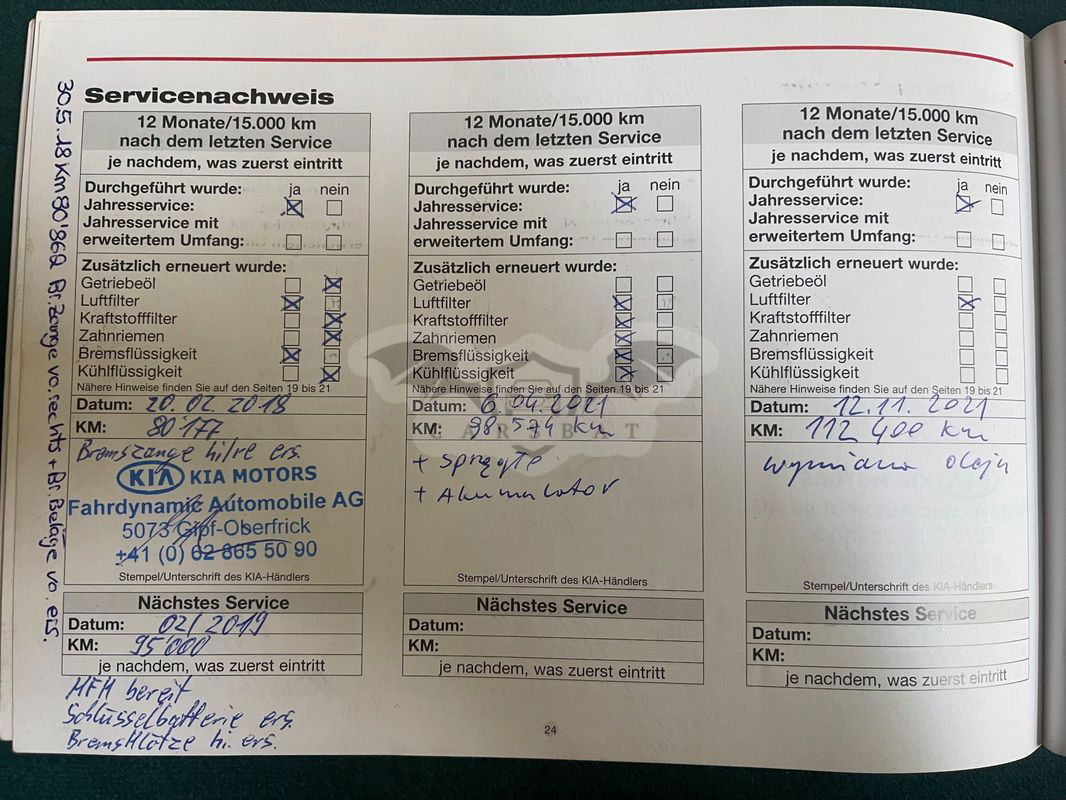 Servicenachweis
30.5.18 Km 80'862 Br.Zange vo. rechts + Br.Beläge vo. ers.
12 Monate/15.000 km
nach dem letzten Service
je nachdem, was zuerst eintritt
Durchgeführt wurde: ja nein
Jahresservice:
Jahresservice mit
erweitertem Umfang:
Zusätzlich erneuert wurde:
Getriebeöl
Luftfilter
Kraftstofffilter
Zahnriemen
Bremsflüssigkeit
Kühlflüssigkeit
Nähere Hinweise finden Sie auf den Seiten 19 bis 21
Datum: 20.02.2018
KM: 80'177
Bremszange hi/re ers.
KIA KIA MOTORS
Fahrdynamic Automobile AG
5073 Gipf-Oberfrick
+41 (0) 62 865 50 90
Stempel/Unterschrift des KIA-Händlers
Nächstes Service
Datum: 02/2019
KM: 95'000
je nachdem, was zuerst eintritt
MFH bereit
Schlüsselbatterie ers.
Bremsklötze hi. ers.
12 Monate/15.000 km
nach dem letzten Service
je nachdem, was zuerst eintritt
Durchgeführt wurde: ja nein
Jahresservice:
Jahresservice mit
erweitertem Umfang:
Zusätzlich erneuert wurde:
Getriebeöl
Luftfilter
Kraftstofffilter
Zahnriemen
Bremsflüssigkeit
Kühlflüssigkeit
Nähere Hinweise finden Sie auf den Seiten 19 bis 21
Datum: 6.04.2021
KM: 98 574 km
CARSBAT
+ Sprzęgło
+ Akumulator
Stempel/Unterschrift des KIA-Händlers
Nächstes Service
Datum:
KM:
je nachdem, was zuerst eintritt
12 Monate/15.000 km
nach dem letzten Service
je nachdem, was zuerst eintritt
Durchgeführt wurde: ja nein
Jahresservice:
Jahresservice mit
erweitertem Umfang:
Zusätzlich erneuert wurde:
Getriebeöl
Luftfilter
Kraftstofffilter
Zahnriemen
Bremsflüssigkeit
Kühlflüssigkeit
Nähere Hinweise finden Sie auf den Seiten 19 bis 21
Datum: 12.11.2021
KM: 112 400 km
wymiana oleju
Stempel/Unterschrift des KIA-Händlers
Nächstes Service
Datum:
KM:
je nachdem, was zuerst eintritt
24